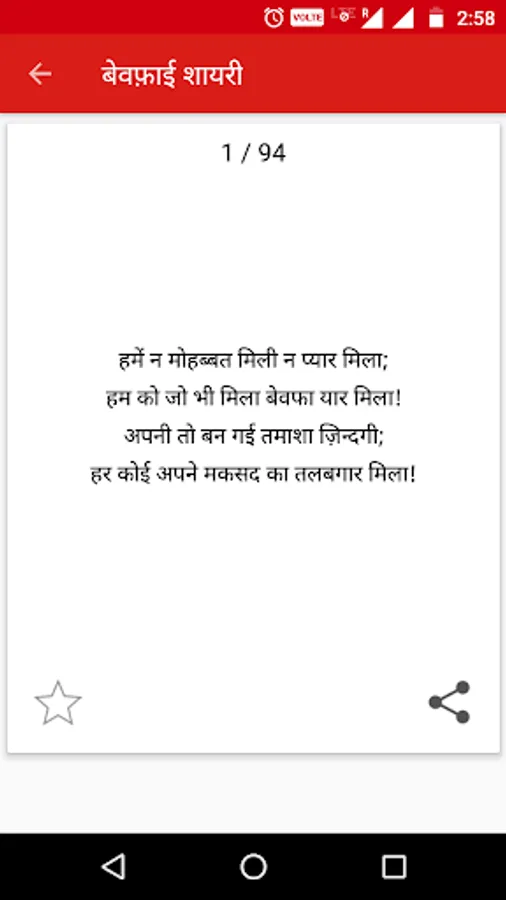 VOLTE R 2:58
बेवफ़ाई शायरी
1 / 94
हमें न मोहब्बत मिली न प्यार मिला;
हम को जो भी मिला बेवफा यार मिला!
अपनी तो बन गई तमाशा ज़िन्दगी;
हर कोई अपने मकसद का तलबगार मिला!